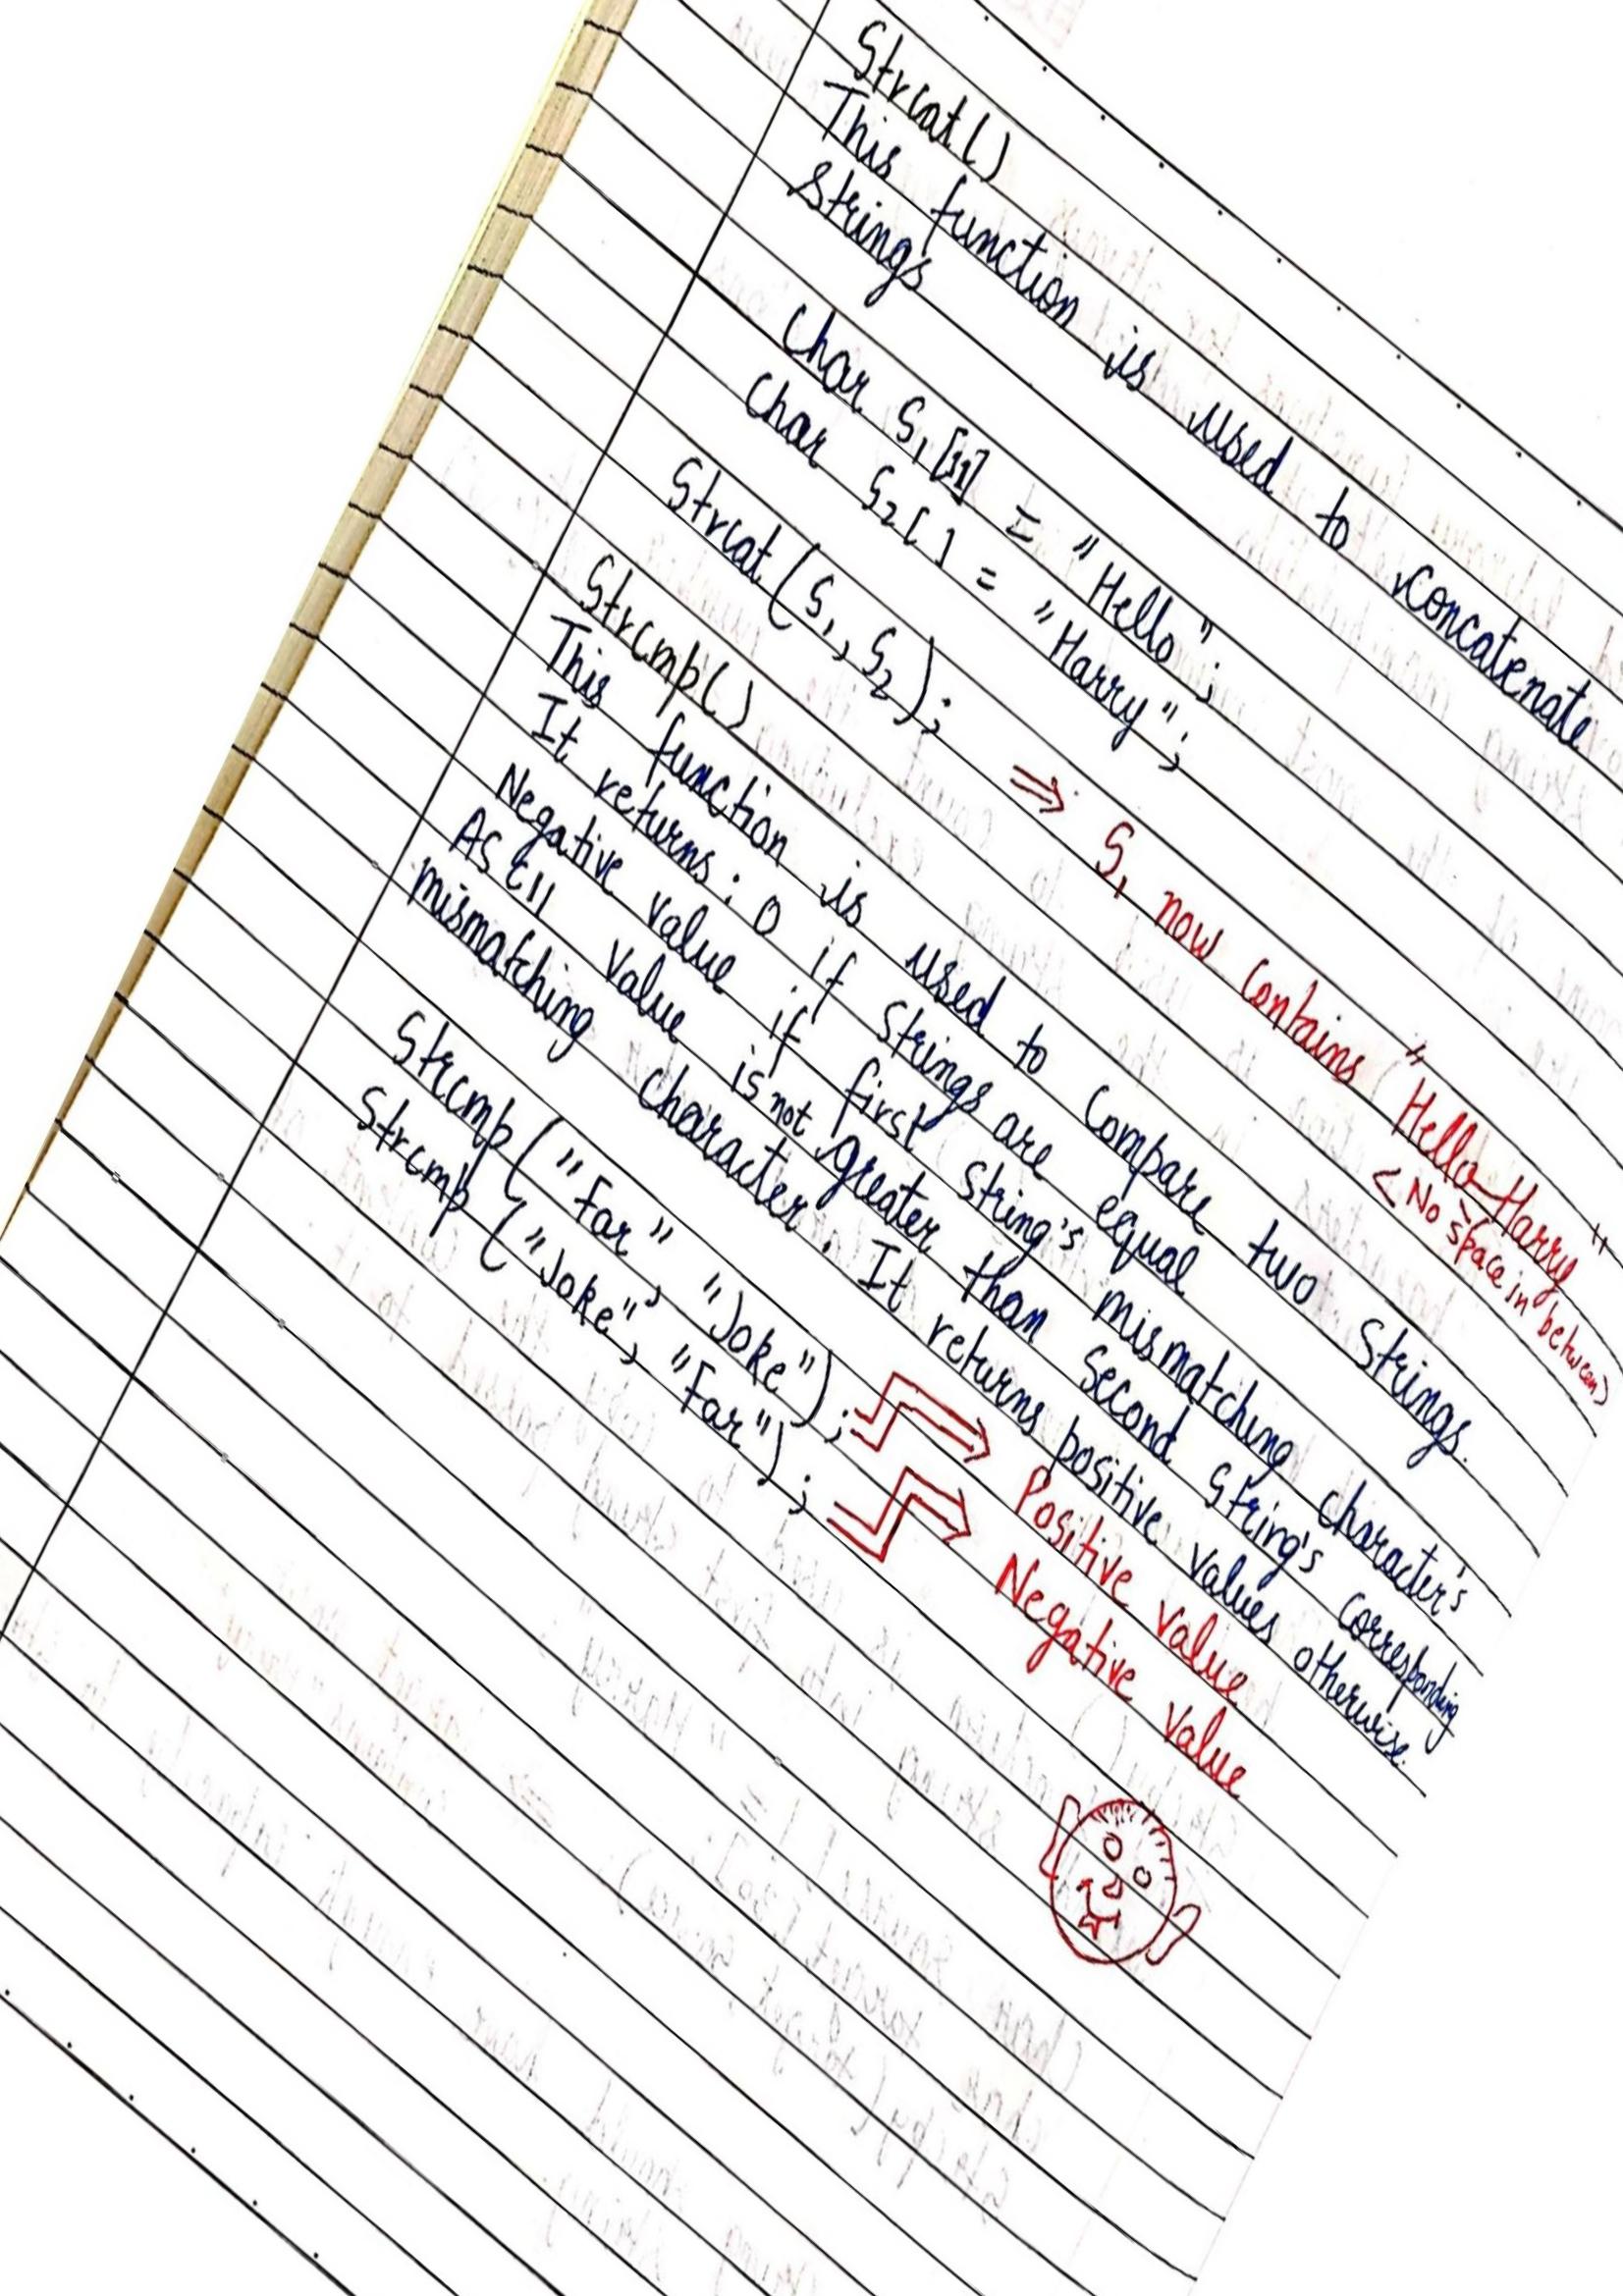 Strcat()
This function is used to concatenate
Strings
Char S1[11] = "Hello";
Char S2[] = "Harry";
Strcat(S1, S2); ⇒ S1 now contains "Hello Harry"
<No space in between>
Strcmp()
This function is used to Compare two Strings.
It returns: 0 if Strings are equal
Negative value if first String's mismatching character's
ASCII value is not greater than Second String's corresponding
mismatching character. It returns positive values otherwise.
Strcmp("Far", "Joke"); ⇒ Positive value
Strcmp("Joke", "Far"); ⇒ Negative value